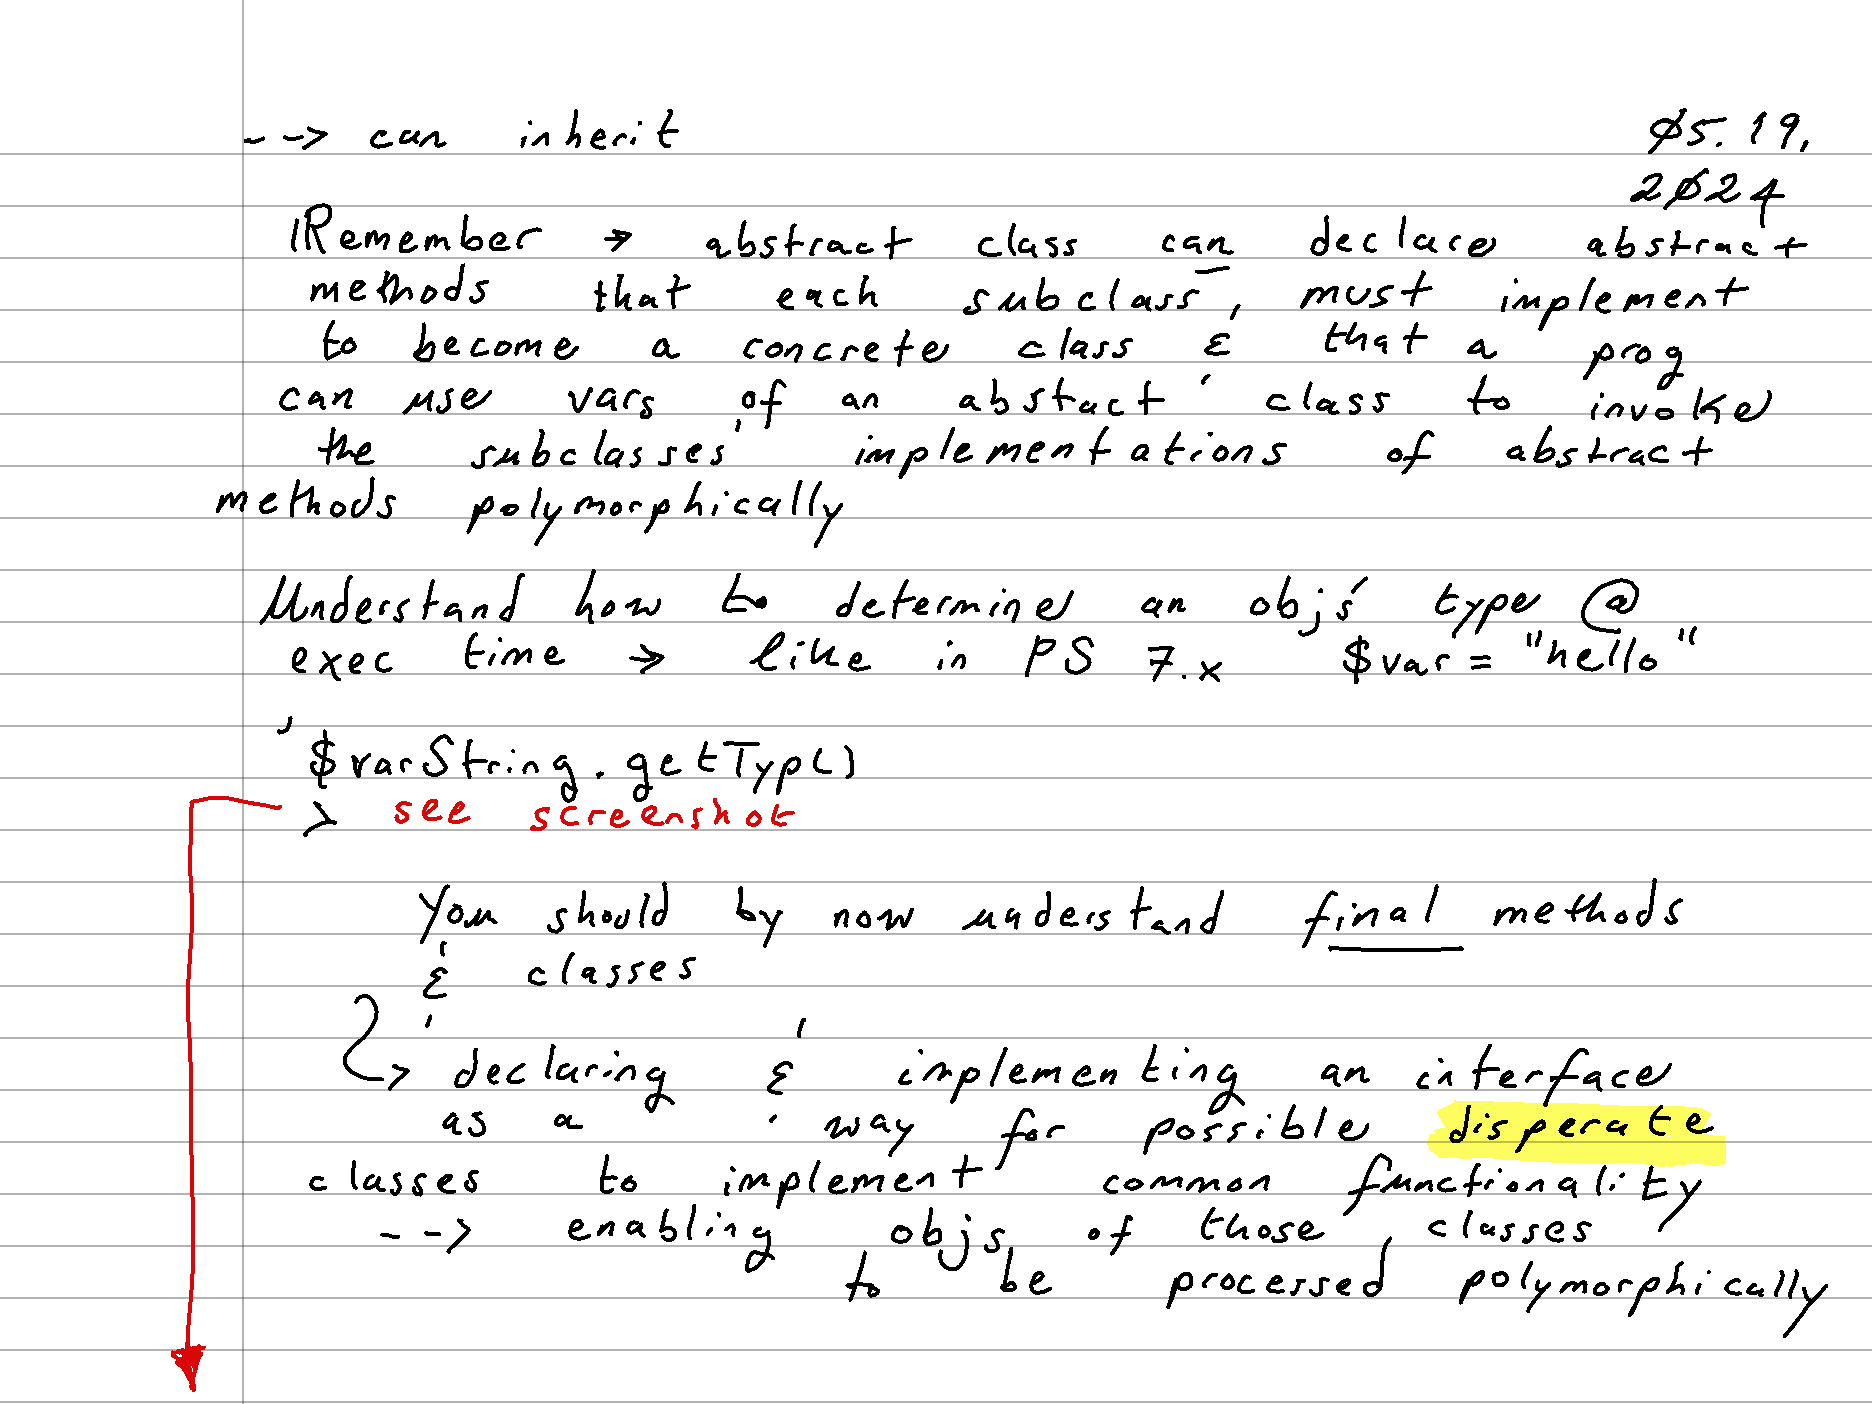 --> can inherit
Ø5.19,
2Ø24
Remember → abstract class can declare abstract
methods that each subclass, must implement
to become a concrete class & that a prog
can use vars of an abstuct class to invoke
the subclasses' implementations of abstract
methods polymorphically
Understand how to determine an obj's type @
exec time → like in PS 7.x $var = "hello"
$varString.getTyp()
> see screenshot
You should by now understand final methods
& classes
↳ declaring & implementing an interface
as a way for possible disperate
classes to implement common functionality
--> enabling objs of those classes
to be processed polymorphically